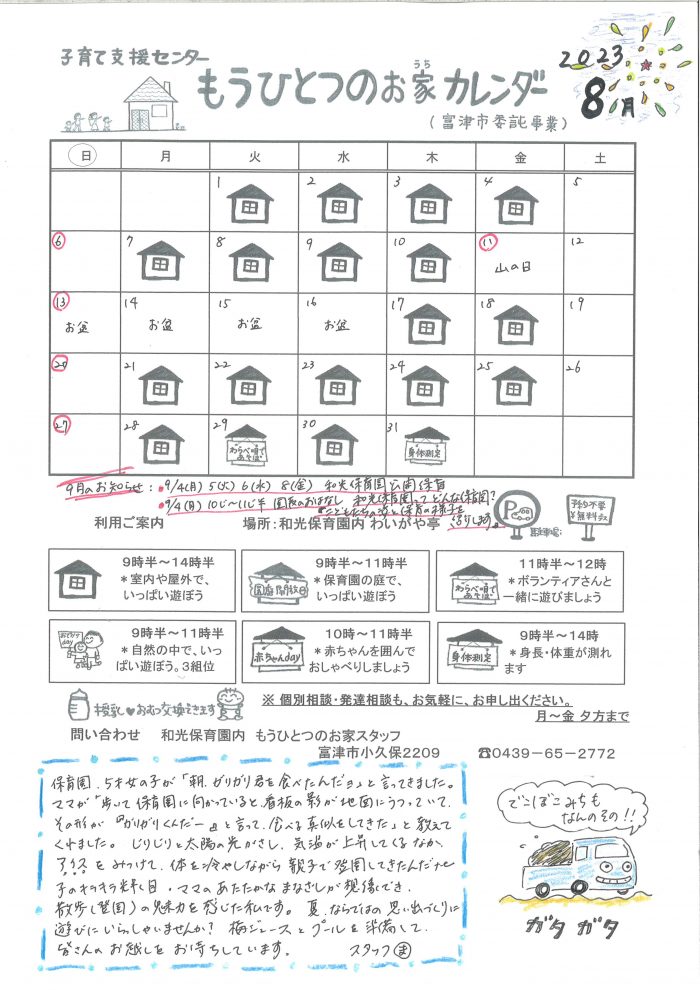 子育て支援センター
もうひとつのお家カレンダー
うち
(富津市委託事業)
2023
8月
日 月 火 水 木 金 土
1 2 3 4 5
6 7 8 9 10 11 12
山の日
13 14 15 16 17 18 19
お盆 お盆 お盆 お盆
20 21 22 23 24 25 26
27 28 29 30 31
わらべ唄であそぼ 身体測定
9月のお知らせ:・9/4(月) 5(火) 6(水) 8(金) 和光保育園公開保育
・9/4(月) 10じ〜11じ半 園長のおはなし 和光保育園ってどんな保育園?
こどもたちの姿と保育の様子を
語ります。
利用ご案内 場所:和光保育園内 わいがや亭
P
駐車場:
予約不要
¥無料です
9時半〜14時半
*室内や屋外で、
いっぱい遊ぼう
園庭開放日
9時半〜11時半
*保育園の庭で、
いっぱい遊ぼう
わらべ唄であそぼ
11時半〜12時
*ボランティアさんと
一緒に遊びましょう
おでかけday
9時半〜11時半
*自然の中で、いっ
ぱい遊ぼう。3組位
赤ちゃんday
10時〜11時半
*赤ちゃんを囲んで
おしゃべりしましょう
身体測定
9時半〜14時
*身長・体重が測れ
ます
授乳♥おむつ交換できます
※ 個別相談・発達相談も、お気軽に、お申し出ください。
月〜金 夕方まで
問い合わせ 和光保育園内 もうひとつのお家スタッフ
富津市小久保2209 ☎0439-65-2772
保育園、5才女の子が「朝、ガリガリ君を食べたんだョ」と言ってきました。
ママが「歩いて保育園に向かっていると、看板の影が地面にうつっていて、
その形が『ガリガリくんだー』と言って、食べる真似をしてきた」と教えて
くれました。じりじりと太陽の光がさし、気温が上昇してくるなか、
アイスをみつけて、体を冷やしながら親子で登園してきたんだナと
子のキラキラ輝く目・ママのあたたかなまなざしが想像でき、
散歩(登園)の魅力を感じた私です。夏ならではの思い出づくりに
遊びにいらしゃいませんか? 梅ジュースとプールを準備して、
皆さんのお越しをお待ちしています。 スタッフ ま
でこぼこみちも
なんのその!!
ガタ ガタ